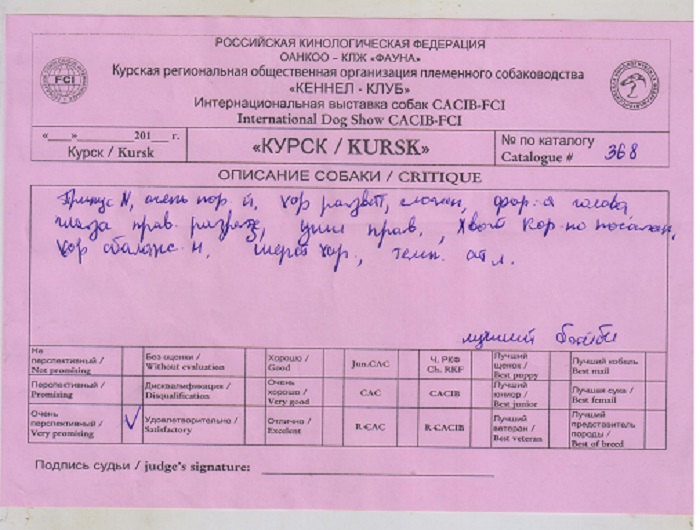 РОССИЙСКАЯ КИНОЛОГИЧЕСКАЯ ФЕДЕРАЦИЯ
ОАНКОО - КЛЖ «ФАУНА»
Курская региональная общественная организация племенного собаководства
«КЕННЕЛ - КЛУБ»
Интернациональная выставка собак CACIB-FCI
International Dog Show CACIB-FCI
FCI
«___»________201___ г.
Курск / Kursk
«КУРСК / KURSK»
№ по каталогу
Catalogue # 368
ОПИСАНИЕ СОБАКИ / CRITIQUE
Прикус N, очень пор. й, хор развит, сложен, фор-а голова
глаза прав. разрезе, уши прав., хвост кор-но посажен,
хор сбаланс-н. шерст хор., темп. отл.
лучший бэйби
Не перспективный / Not promising
Без оценки / Without evaluation
Хорошо / Good
Jun.CAC
Ч. РКФ Ch. RKF
Лучший щенок / Best puppy
Лучший кобель Best mail
Перспективный / Promising
Дисквалификация / Disqualification
Очень хорошо / Very good
CAC
CACIB
Лучший юниор / Best junior
Лучшая сука / Best femail
Очень перспективный / Very promising
V
Удовлетворительно / Satisfactory
Отлично / Excelent
R-CAC
R-CACIB
Лучший ветеран / Best veteran
Лучший представитель породы / Best of breed
Подпись судьи / judge's signature: